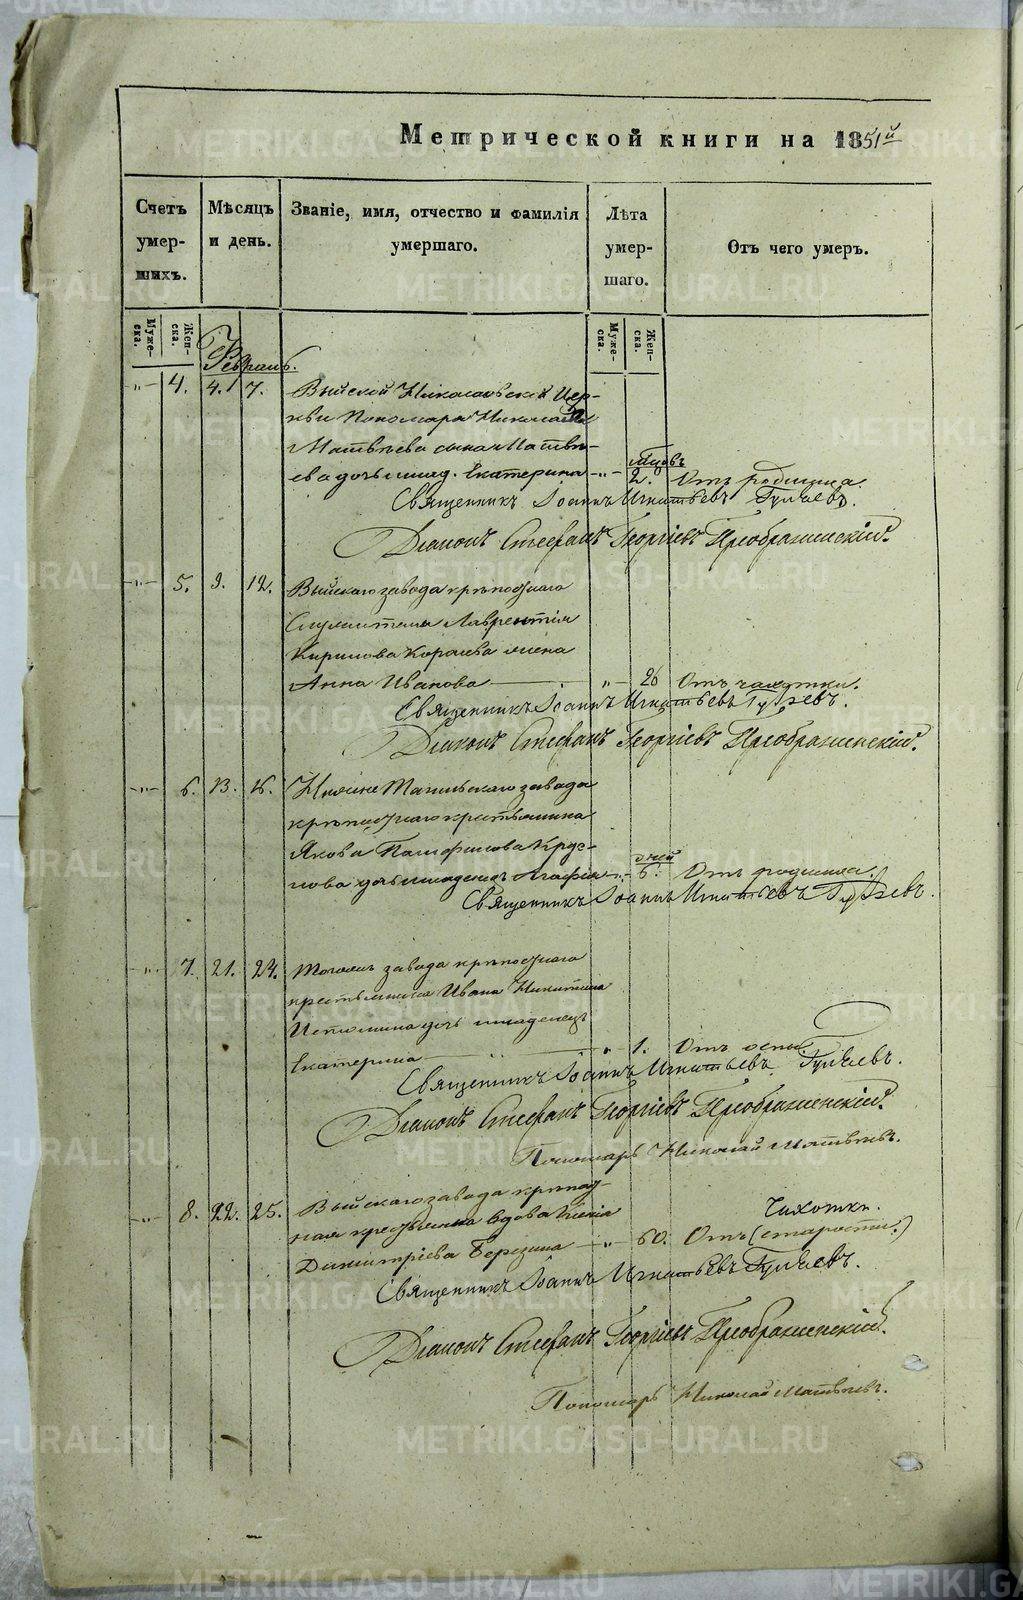 Метрической книги на 1851й
Счетъ умер- шихъ.
Мѣсяцъ и день.
Званіе, имя, отчество и фамилія умершаго.
Лѣта умер- шаго.
Отъ чего умеръ.
Муже- ска.
Жен- ска.
Муже- ска.
Жен- ска.
Февраль.
-„- 4. 4. 7. Выйской Николаевской Цер-
кви Пономаря Николая
Матвѣева сына Матвѣ-
ева дочь млад. Екатерина -„- 2. мѣсяцъ Отъ родимца.
Священникъ Іоаннъ Игнатьевъ
Діаконъ Стефанъ Георгіевъ Преображенскій.
-„- 5. 9. 12. Выйскаго завода крѣпостнаго
Служителя Лаврентія
Кирилова жена
Анна Иванова -„- 26 Отъ чахотки.
Священникъ Іоаннъ Игнатьевъ
Діаконъ Стефанъ Георгіевъ Преображенскій.
-„- 6. 13. 16. Нижне Тагильскаго завода
крѣпостнаго крестьянина
Якова Памфилова
дочь младенецъ Агафія -„- 6. дней Отъ родимца.
Священникъ Іоаннъ Игнатьевъ
-„- 7. 21. 24. Тогожъ завода крѣпостнаго
крестьянина Ивана Никитина
Истомина дочь младенецъ
Екатерина -„- 1. Отъ оспы
Священникъ Іоаннъ Игнатьевъ
Діаконъ Стефанъ Георгіевъ Преображенскій.
Пономарь Николай Матвѣевъ.
-„- 8. 22. 25. Выйскаго завода крѣпост-
ная крестьянка вдова Ксенія
Димитріева Березина -„- 60. Отъ (старости.) Чахотки.
Священникъ Іоаннъ Игнатьевъ
Діаконъ Стефанъ Георгіевъ Преображенскій.
Пономарь Николай Матвѣевъ.
METRIKI.GASO-URAL.RU